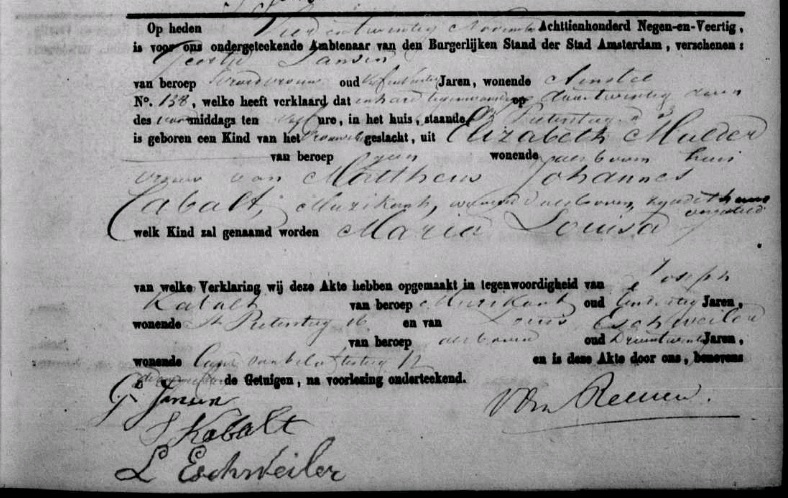 Op heden Vier en twintig November Achttienhonderd Negen-en-Veertig,
is voor ons ondergeteekende Ambtenaar van den Burgerlijken Stand der Stad Amsterdam, verschenen:
Geertje Jansen
van beroep Vroedvrouw oud Jaren, wonende Amstel
No. 138, welke heeft verklaard dat in hare tegenwoordigheid op
des voormiddags ten vijf ure, in het huis, staande Pietersteeg
is geboren een Kind van het Vrouwelijk geslacht, uit Elizabeth Mulder
van beroep geen wonende als boven huis
vrouw van Mattheus Johannes
Cabalt, Muzikant, wonende als boven, zijnde thans
welk Kind zal genaamd worden Maria Louisa
van welke Verklaring wij deze Akte hebben opgemaakt in tegenwoordigheid van Joseph
Kabalt van beroep Muzikant oud Jaren,
wonende St Pietersteeg 16 en van Louis Eschweiler
van beroep als boven oud Jaren,
wonende en is deze Akte door ons, benevens
de Getuigen, na voorlezing onderteekend.
G. Jansen
J Kabalt
L Eschweiler